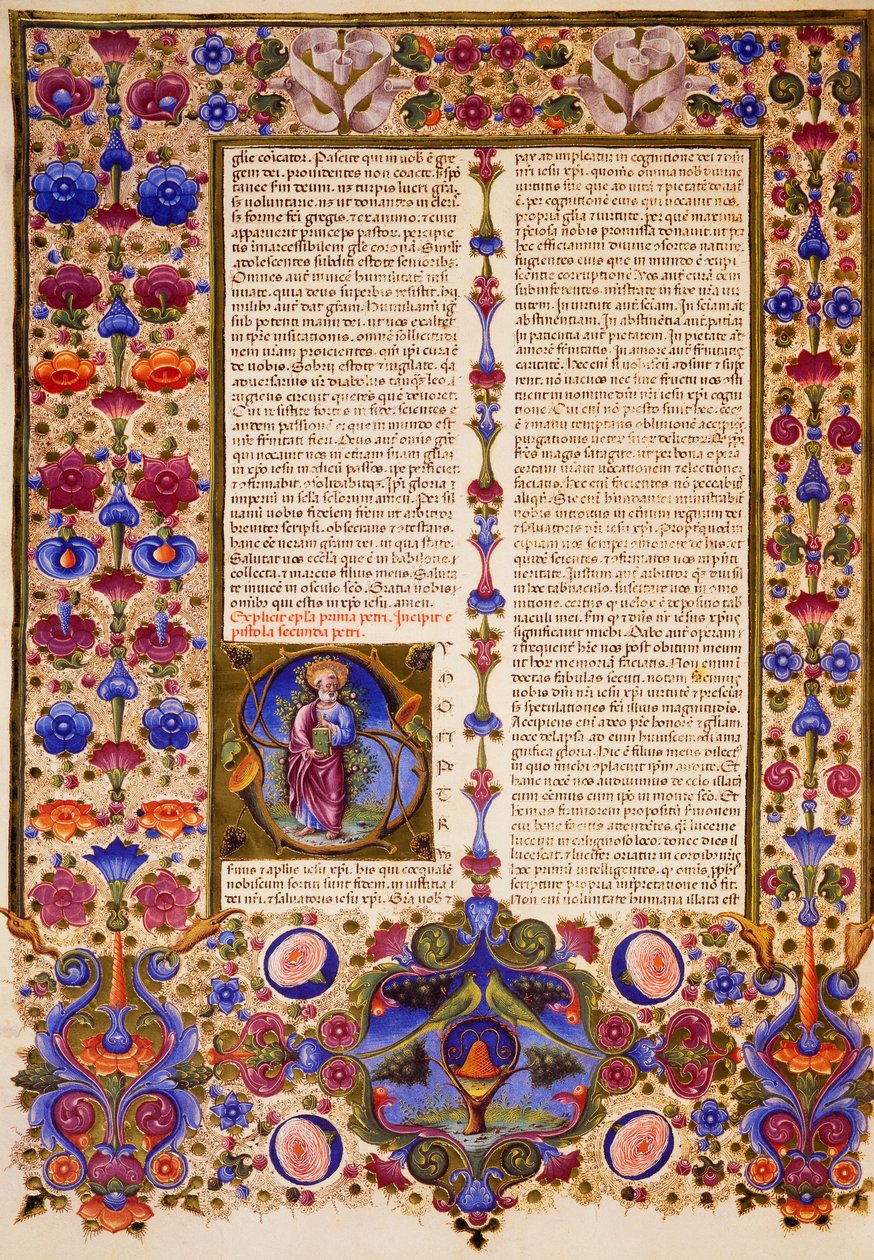 glie coicator. Pascite qui in uob ē gre
gem dei. prouidentes non coacte. sʒ spo
tanee scđm deum. nʒ turpis lucri grā.
sʒ uoluntarie. nʒ ut donantes in cleris.
sʒ forme facti gregis. ⁊ ex animo. ⁊ cum
apparuerit princeps pastor. percipie
tis imarcessibilem glē coronā. Similr
adolescentes subditi estote senioribʒ.
Omnes aūt inuicē humilitatē insi
nuate. quia deus superbis resistit. hu
milibus aūt dat grām. Humiliamī igr
sub potenti manu dei. ut uos exaltet
in tpre uisitationis. omnē sollicitudi
nem urām proicientes. qm ipi cura ē
de uobis. Sobrii estote ⁊ uigilate. qa
aduersarius ur diabolus tanqʒ leo ru
giens circuit querēs quē deuoret.
Cui resistite fortes in fide. scientes e
andem passionē ei que in mundo est
ure frnitati fieri. Deus aūt omis grē
qui uocauit nos in eternam suam gliam
in xpo iesu modicū passos. ipe perficiet
⁊ cōfirmabit. solidabitqʒ. Ipi gloria ⁊
imperiū in sclā sclorum amen. Per sil
uanū uobis fidelem frēm ut arbitror
breuiter scripsi. obsecrans ⁊ cōtestans.
hanc eē ueram grām dei. in qua statis.
Salutat uos ecclā que ē in babilone.
collecta. ⁊ marcus filius meus. Saluta
te inuicē in osculo scō. Gratia uobis
omibʒ qui estis in xpo iesu. amen.
Explicit epla prima petri. Incipit e
pistola secunda petri.
YMON PETR
us
seruus ⁊ aplus iesu xpi. his qui coequalē
nobiscum sortiti sunt fidem. in iustitia
dei nri. ⁊ saluatoris iesu xpi. Grā uobis
pax adimpleatur in cognitione dei ⁊ dni
nri iesu xpi. quomō omnia nobis diuine
uirtutis sue que ad uitā ⁊ pietatē donata
ē. per cognitionē eius qui uocauit nos.
propria glia ⁊ uirtute. per quē maxima
⁊ pciosa nobis promissa donauit. ut per
hec efficiamini diuine cōsortes nature.
fugientes eius que in mundo ē cōcupi
scentie corruptionē. Vos aūt curā oēm
subinferentes. ministrate in fide ura uir
tutem. In uirtute aūt sciam. In scia aūt
abstinentiam. In abstinētia aūt patiam.
In patientia aūt pietatem. In pietate aūt
amorē frnitatis. In amore aūt frnitatis
caritatē. Hec eni si uobiscū adsint ⁊ supe
rent. nō uacuos nec sine fructu uos cōsti
tuent in nomine dni nri iesu xpi cogni
tione. Cui eni nō presto sunt hec. cec
ē ⁊ manu temptans. obliuionē accipiens
purgationis ueterū suorū delictorū. Qpr frs
magis satagite. ut per bona opera
certam uram uocationem ⁊ electionē
faciatis. Hec eni facientes nō peccabitis
aliqn. Sic eni habundanter ministrabitur
uobis introitus in eternum regnum dni
⁊ saluatoris nri iesu xpi. Propter quod in
cipiam uos semper cōmonere de his. et
quidē scientes. ⁊ cōfirmatos uos in pnti
ueritate. Justum aūt arbitror qʒ diu sū
in hoc tabernaculo. suscitare uos in cōmo
nitione. certus qʒ uelox ē depositio tab
naculi mei. scđm qʒ ⁊ dns nr iesus xpus
significauit michi. Dabo aūt operam
⁊ frequenter habere uos post obitum meum
ut horū memoriam faciatis. Non enim in
doctas fabulas secuti. notam fecimus
uobis dni nri iesu xpi uirtutē ⁊ pscienciā
sʒ speculatores facti illius magnitudinis.
Accipiens eni a deo pre honorē ⁊ gliam.
uoce delapsa ad eum huiuscemodi a ma
gnifica gloria. Hic ē filius meus dilectus
in quo michi cōplacuit ipsum audite. Et
hanc uocē nos audiuimus de celo illatā
cum eēmus cum ipo in monte scō. Et
hēmus firmiorem propheticū sermonē
cui bene facitis attendētes. qsi lucerne
lucenti in caliginoso loco. donec dies il
lucescat. ⁊ lucifer oriatur in cordibus uris
hoc primū intelligentes. qʒ omis propħia
scripture propria interpretatione nō fit.
Non eni uoluntate humana allata est